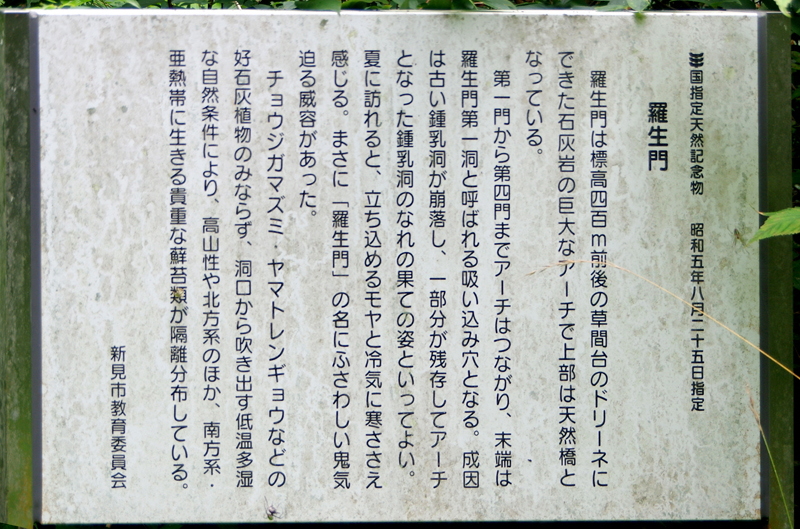 国指定天然記念物　昭和五年八月二十五日指定
羅生門
羅生門は標高四百m前後の草間台のドリーネに
できた石灰岩の巨大なアーチで上部は天然橋と
なっている。
第一門から第四門までアーチはつながり、末端は
羅生門第一洞と呼ばれる吸い込み穴となる。成因
は古い鍾乳洞が崩落し、一部分が残存してアーチ
となった鍾乳洞のなれの果ての姿といってよい。
夏に訪れると、立ち込めるモヤと冷気に寒ささえ
感じる。まさに「羅生門」の名にふさわしい鬼気
迫る威容があった。
チョウジガマズミ・ヤマトレンギョウなどの
好石灰植物のみならず、洞口から吹き出す低温多湿
な自然条件により、高山性や北方系のほか、南方系・
亜熱帯に生きる貴重な蘚苔類が隔離分布している。
新見市教育委員会